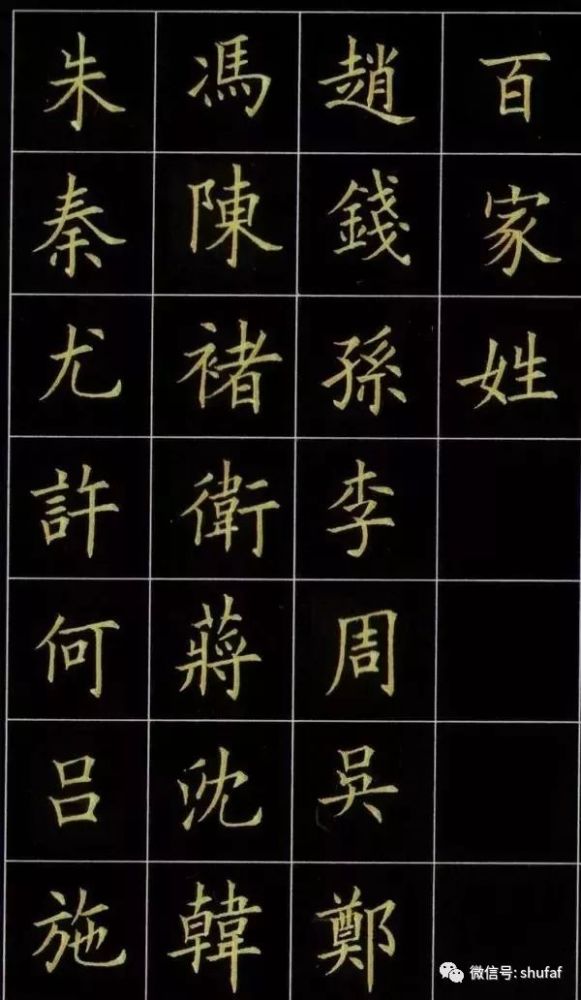 百家姓
趙錢孫李周吳鄭
馮陳褚衛蔣沈韓
朱秦尤許何吕施
微信号: shufaf